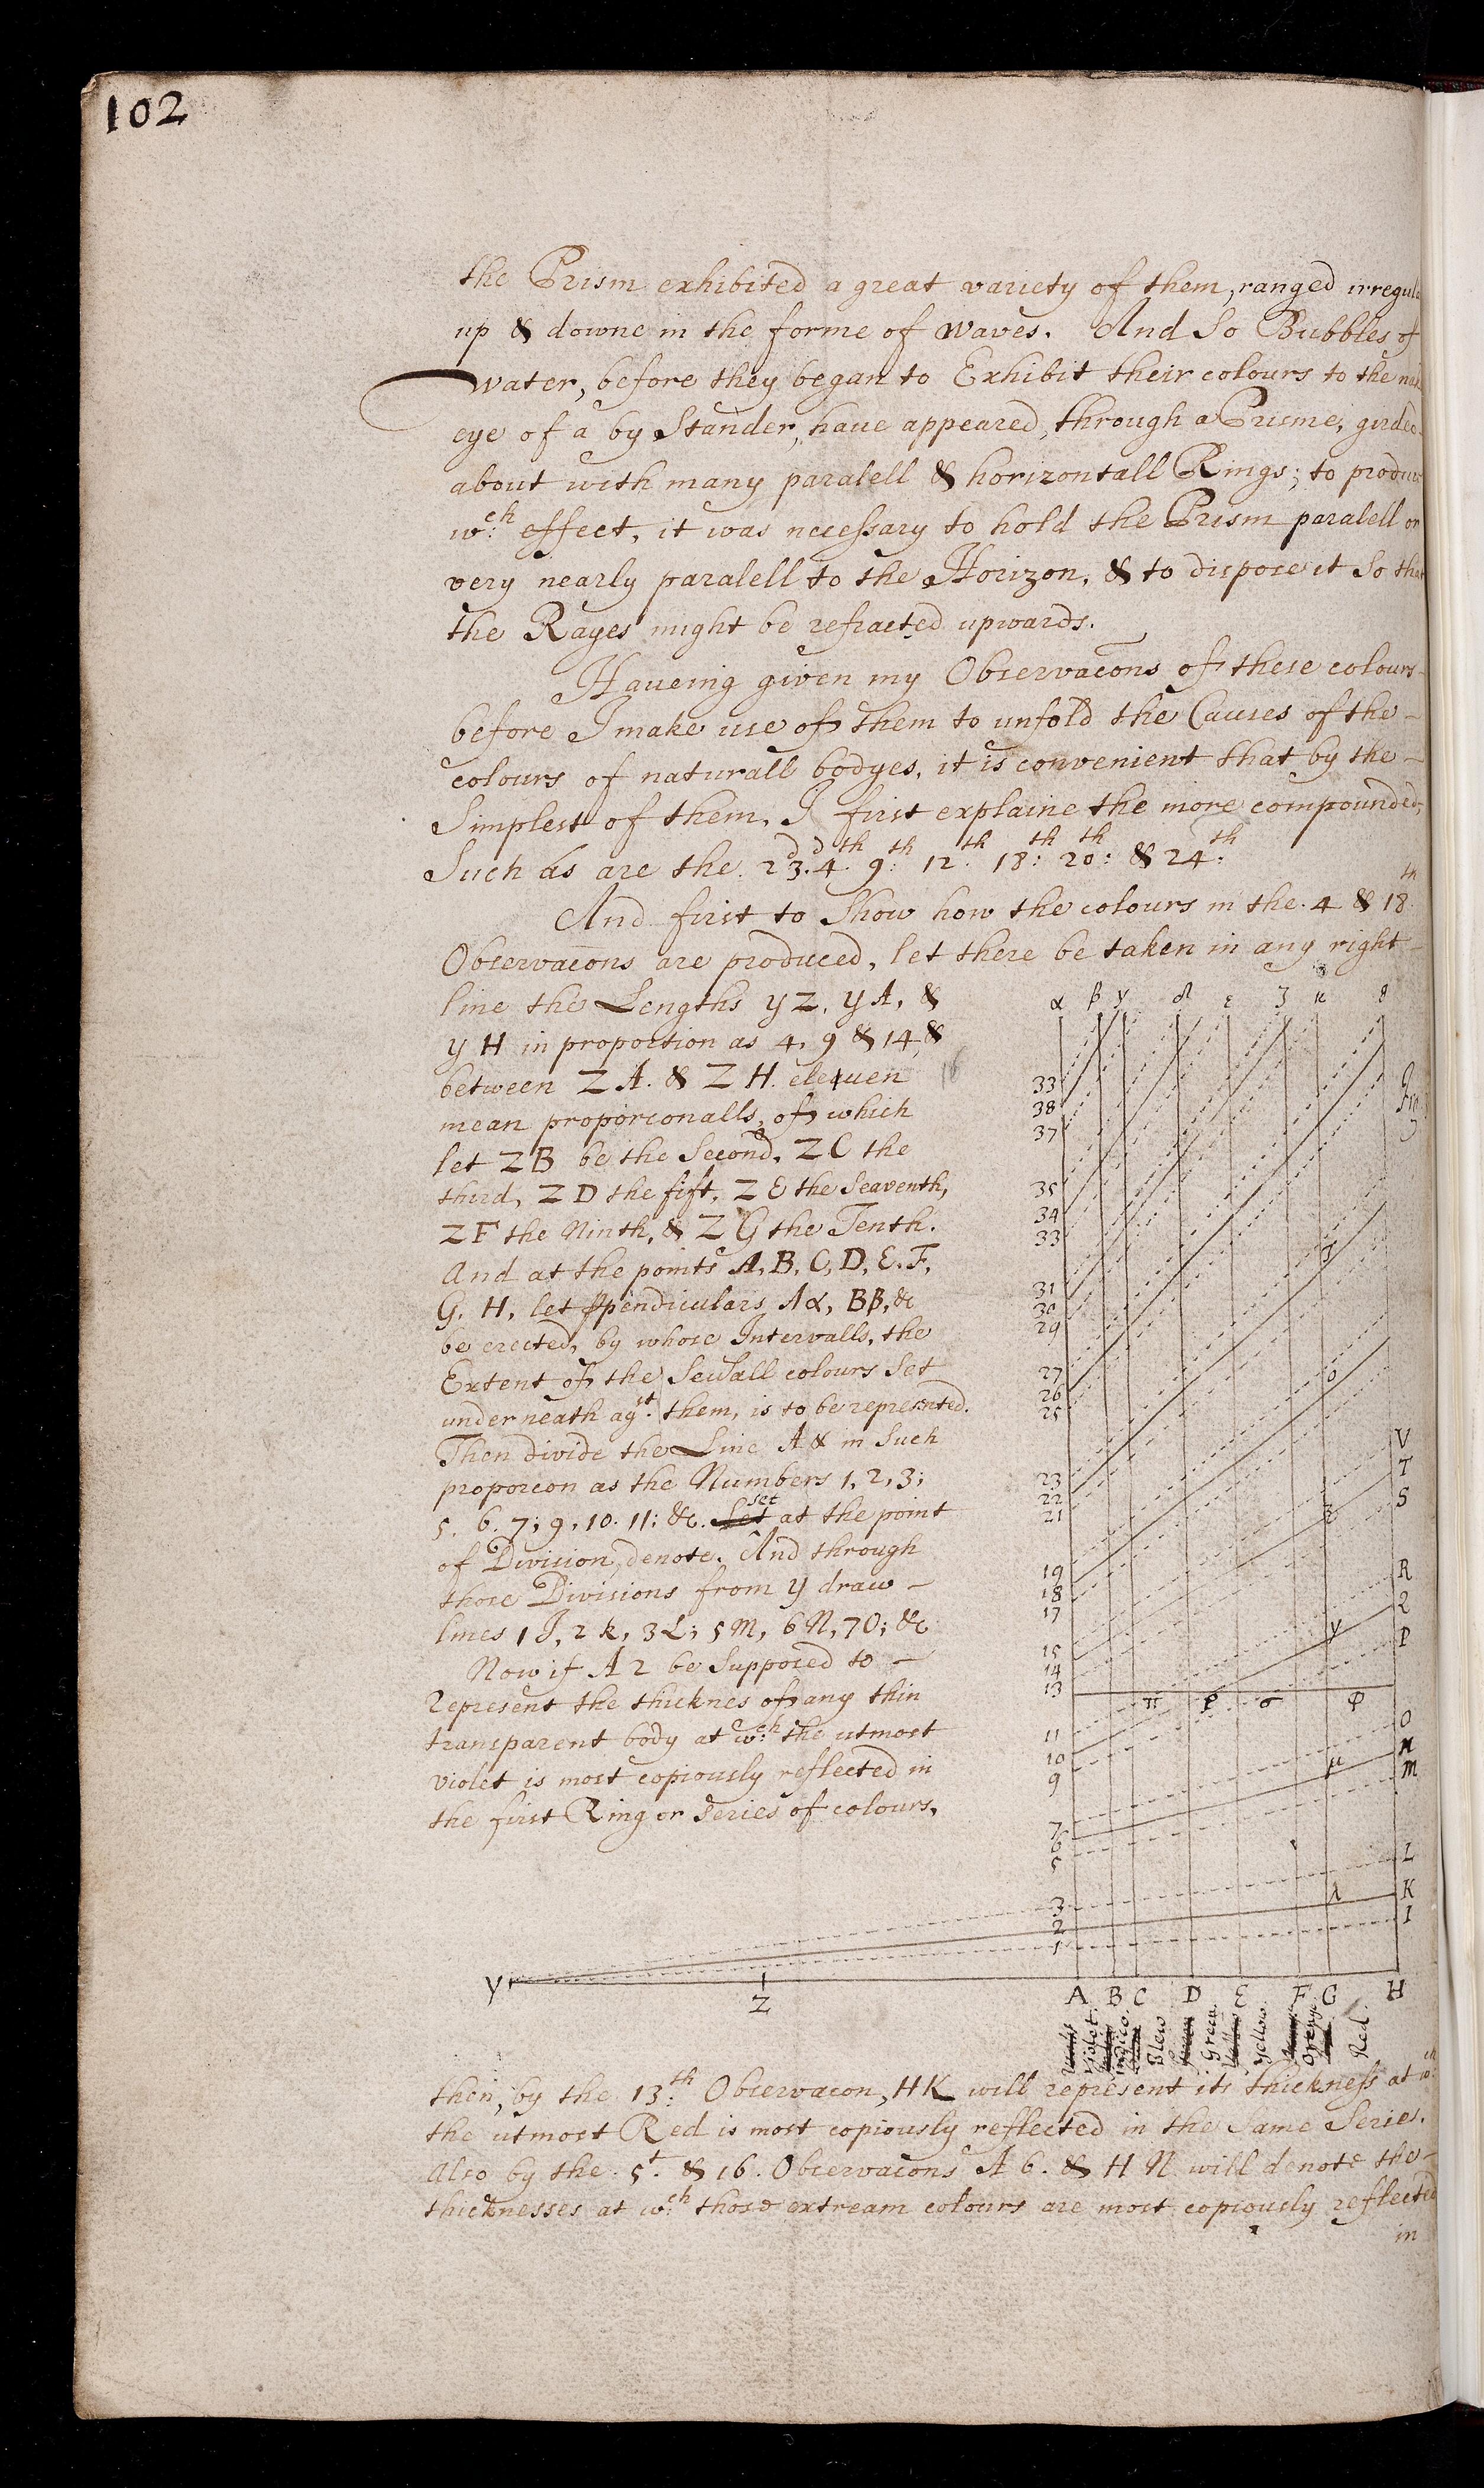 102
the Prism exhibited a great variety of them, ranged irregul
up & downe in the forme of waves. And So Bubbles of
water, before they began to Exhibit their colours to the
eye of a by Stander, haue appeared, through a Prisme, girded
about with many paralell & horizontall Rings; to produce
wch: effect, it was necessary to hold the Prism paralell or
very nearly paralell to the Horizon, & to dispose it So that
the Rayes might be refracted upwards.
Haueing given my Observacons of these colours
before I make use of them to unfold the Causes of the
colours of naturall bodyes, it is convenient that by the
Simplest of them, I first explaine the more compounded,
Such as are the 2d 3d. 4th 9th: 12th: 18th: 20th: & 24th:
And first to Show how the colours in the 4 & 18th
Observacons are produced, let there be taken in any right
line the Lengths yZ, yA, &
yH in proportion as 4, 9 & 14, &
between ZA. & ZH. eleven
mean proporconalls, of which
let ZB be the Second, ZC the
third, ZD the fift, ZE the Seaventh,
ZF the Ninth, & ZG the Tenth.
And at the points A, B, C, D, E, F,
G, H, let ppendiculars Aα, Bβ, &c
be erected, by whose Intervalls, the
Extent of the Sevall colours Set
underneath agst. them, is to be represented.
Then divide the Line Aα in Such
proporcon as the Numbers 1, 2, 3;
5. 6. 7; 9, 10. 11; &c. Set set at the point
of Division, denote. And through
those Divisions from y draw
lines 1I, 2k, 3L; 5M, 6N, 7O; &c
Now if A2 be Supposed to
represent the thicknes of any thin
transparent body at wch: the utmost
violet is most copiously reflected in
the first Ring or series of colours,
α β γ δ ε ζ η θ
33
38
37
35
34
33
31
30
29
27
26
25
23
22
21
19
18
17
15
14
13
11
10
9
7
6
5
3
2
1
V
T
S
R
2
P
O
N
M
L
K
I
π ρ σ φ
μ
λ
y Z A B C D E F G H
Violet
Indico
Blew
Green
Yellow
Oreng
Red
then, by the 13th: Observacon, HK will represent its thickness at wch:
the utmost Red is most copiously reflected in the Same Series.
Also by the 5t. & 16. Observacons A6. & HN will denote the
thicknesses at wch: those extream colours are most copiously reflected
in